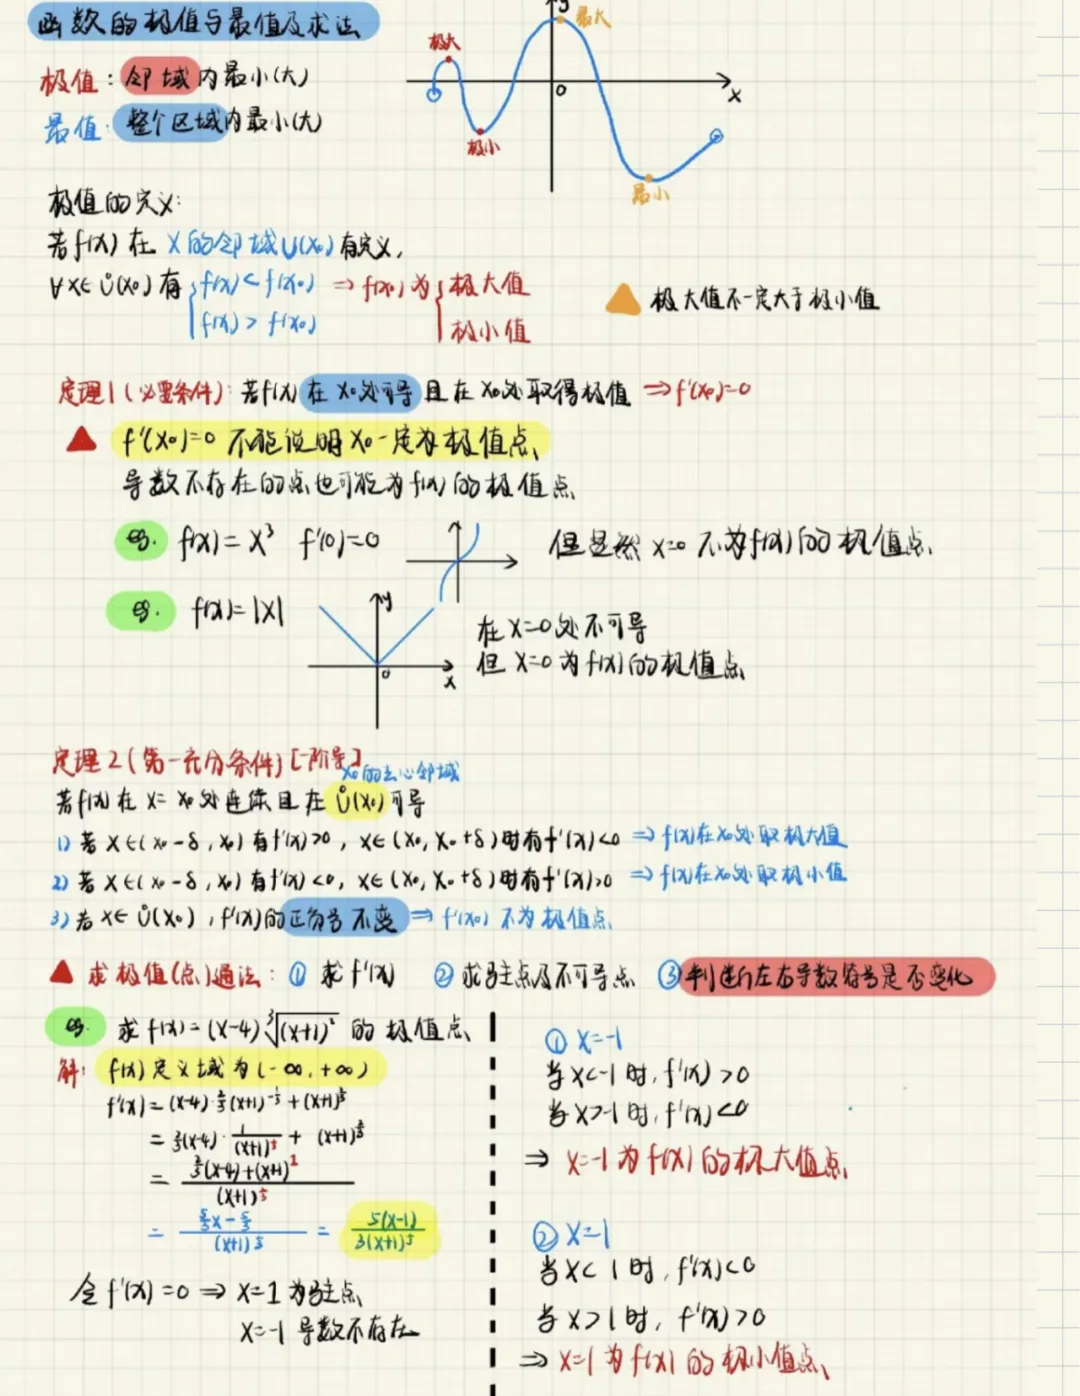 函数的极值与最值及求法
极值：邻域内最小(大)
最值：整个区域内最小(大)
极大
极小
y
最大
0
x
最小
极值的定义：
若f(x)在 x的邻域U(x₀)有定义，
∀x∈Ů(x₀)有{f(x)<f(x₀) ⇒ f(x₀)为{极大值
f(x)>f(x₀) 极小值
极大值不一定大于极小值
定理1(必要条件)：若f(x)在x₀处可导且在x₀处取得极值 ⇒f'(x₀)=0
f'(x₀)=0 不能说明x₀一定为极值点
导数不存在的点也可能为f(x)的极值点
eg. f(x)=x³ f'(0)=0 但显然 x=0 不为f(x)的极值点
eg. f(x)=|x|
y
0
x
在x=0处不可导
但x=0为f(x)的极值点
定理2(第一充分条件)[一阶导]
x₀的去心邻域
若f(x)在x=x₀处连续且在Ů(x₀)可导
1) 若x∈(x₀-δ,x₀)有f'(x)>0，x∈(x₀,x₀+δ)时有f'(x)<0 ⇒f(x)在x₀处取极大值
2) 若x∈(x₀-δ,x₀)有f'(x)<0，x∈(x₀,x₀+δ)时有f'(x)>0 ⇒f(x)在x₀处取极小值
3) 若x∈Ů(x₀)，f'(x)的正负号不变 ⇒f'(x₀)不为极值点
求极值(点)通法：① 求f'(x) ② 求驻点及不可导点 ③判断左右导数符号是否变化
eg. 求f(x)=(x-4)∛(x+1)² 的极值点
解：f(x)定义域为(-∞,+∞)
f'(x)=(x-4)·⅔(x+1)^(-1/3)+(x+1)^(2/3)
=⅔(x-4)·1/(x+1)^(1/3)+(x+1)^(2/3)
=(⅔(x-4)+(x+1)^1)/(x+1)^(1/3)
=(5/3x-5/3)/(x+1)^(1/3)=5(x-1)/3(x+1)^(1/3)
令f'(x)=0 ⇒ x=1为驻点
x=-1 导数不存在
① x=-1
当x<-1时，f'(x)>0
当x>-1时，f'(x)<0
⇒ x=-1为f(x)的极大值点
② x=1
当x<1时，f'(x)<0
当x>1时，f'(x)>0
⇒ x=1为f(x)的极小值点